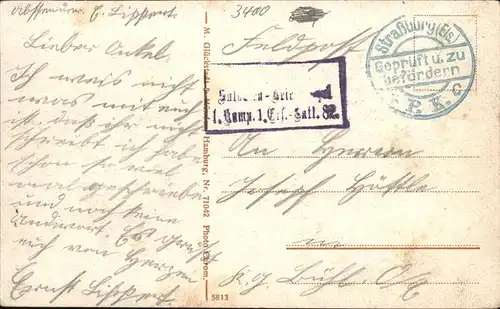 Absender: E. Lippert.
Lieber Onkel,
Ich weis nicht
was mit euch
ist daß ihr nicht
schreibt ich habe
schon so viel
mal geschrieben
und noch keine
Andwort. Es grüßt
euch von Herzen
Ernst Lippert.
M. Glückstadt & Hamburg, Nr. 71042 Photochrom.
5813
3400
Feldpost
Straßburg (Els.
Geprüft u. zu
befördern
P.K. C
Soldaten-Brief
1. Komp. 1. Ers.-Batl. 82.
An Herrn
Josef
in
Bühl